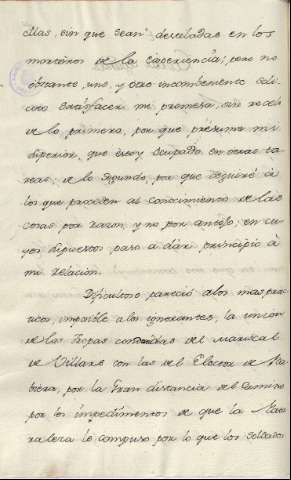 dias, sin que sean desveladas en los
morteros de la experiencia; pero no
obstante, uno, y otro incombeniente soli-
cito satisfacer mi promesa, sin recelo
de lo primero, por que próxima mi
superior, que creo y ocupado en otras ta-
reas; de lo segundo, por que seguiré à
los que proceden al conocimiento de las
cosas por razon, y no por antojo, en cu-
yos supuestos paso a dàr principio à
mi relacion.
Dificultoso pareciò a los mas prac-
ticos, imposible a los ignorantes, la union
de las Tropas comandadas del Mariscal
de Villars con las del Elector de Ba-
biera, por la Gran distancia del camino
por los impedimentos de que la Natu-
raleza lo compuso por lo que los soldados